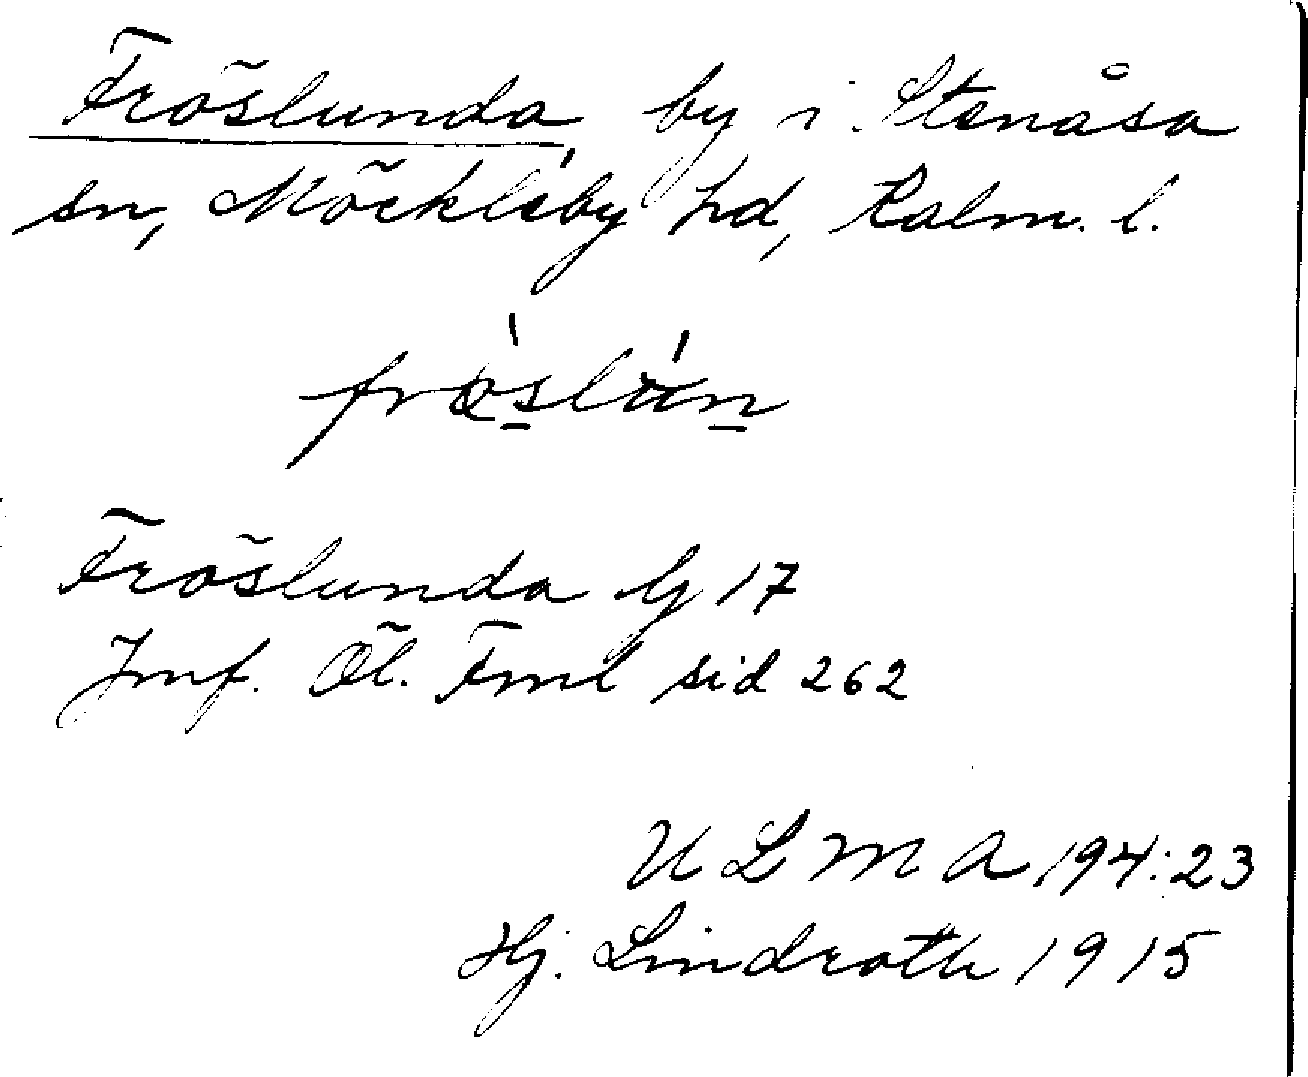 Fröslunda, by i Stenåsa
sn, Möckleby hd, Kalm. l.
Fröslunda Gj 17
Jmf. Öl. Fml sid 262
ULMA 194:23
Hj. Lindroth 1915